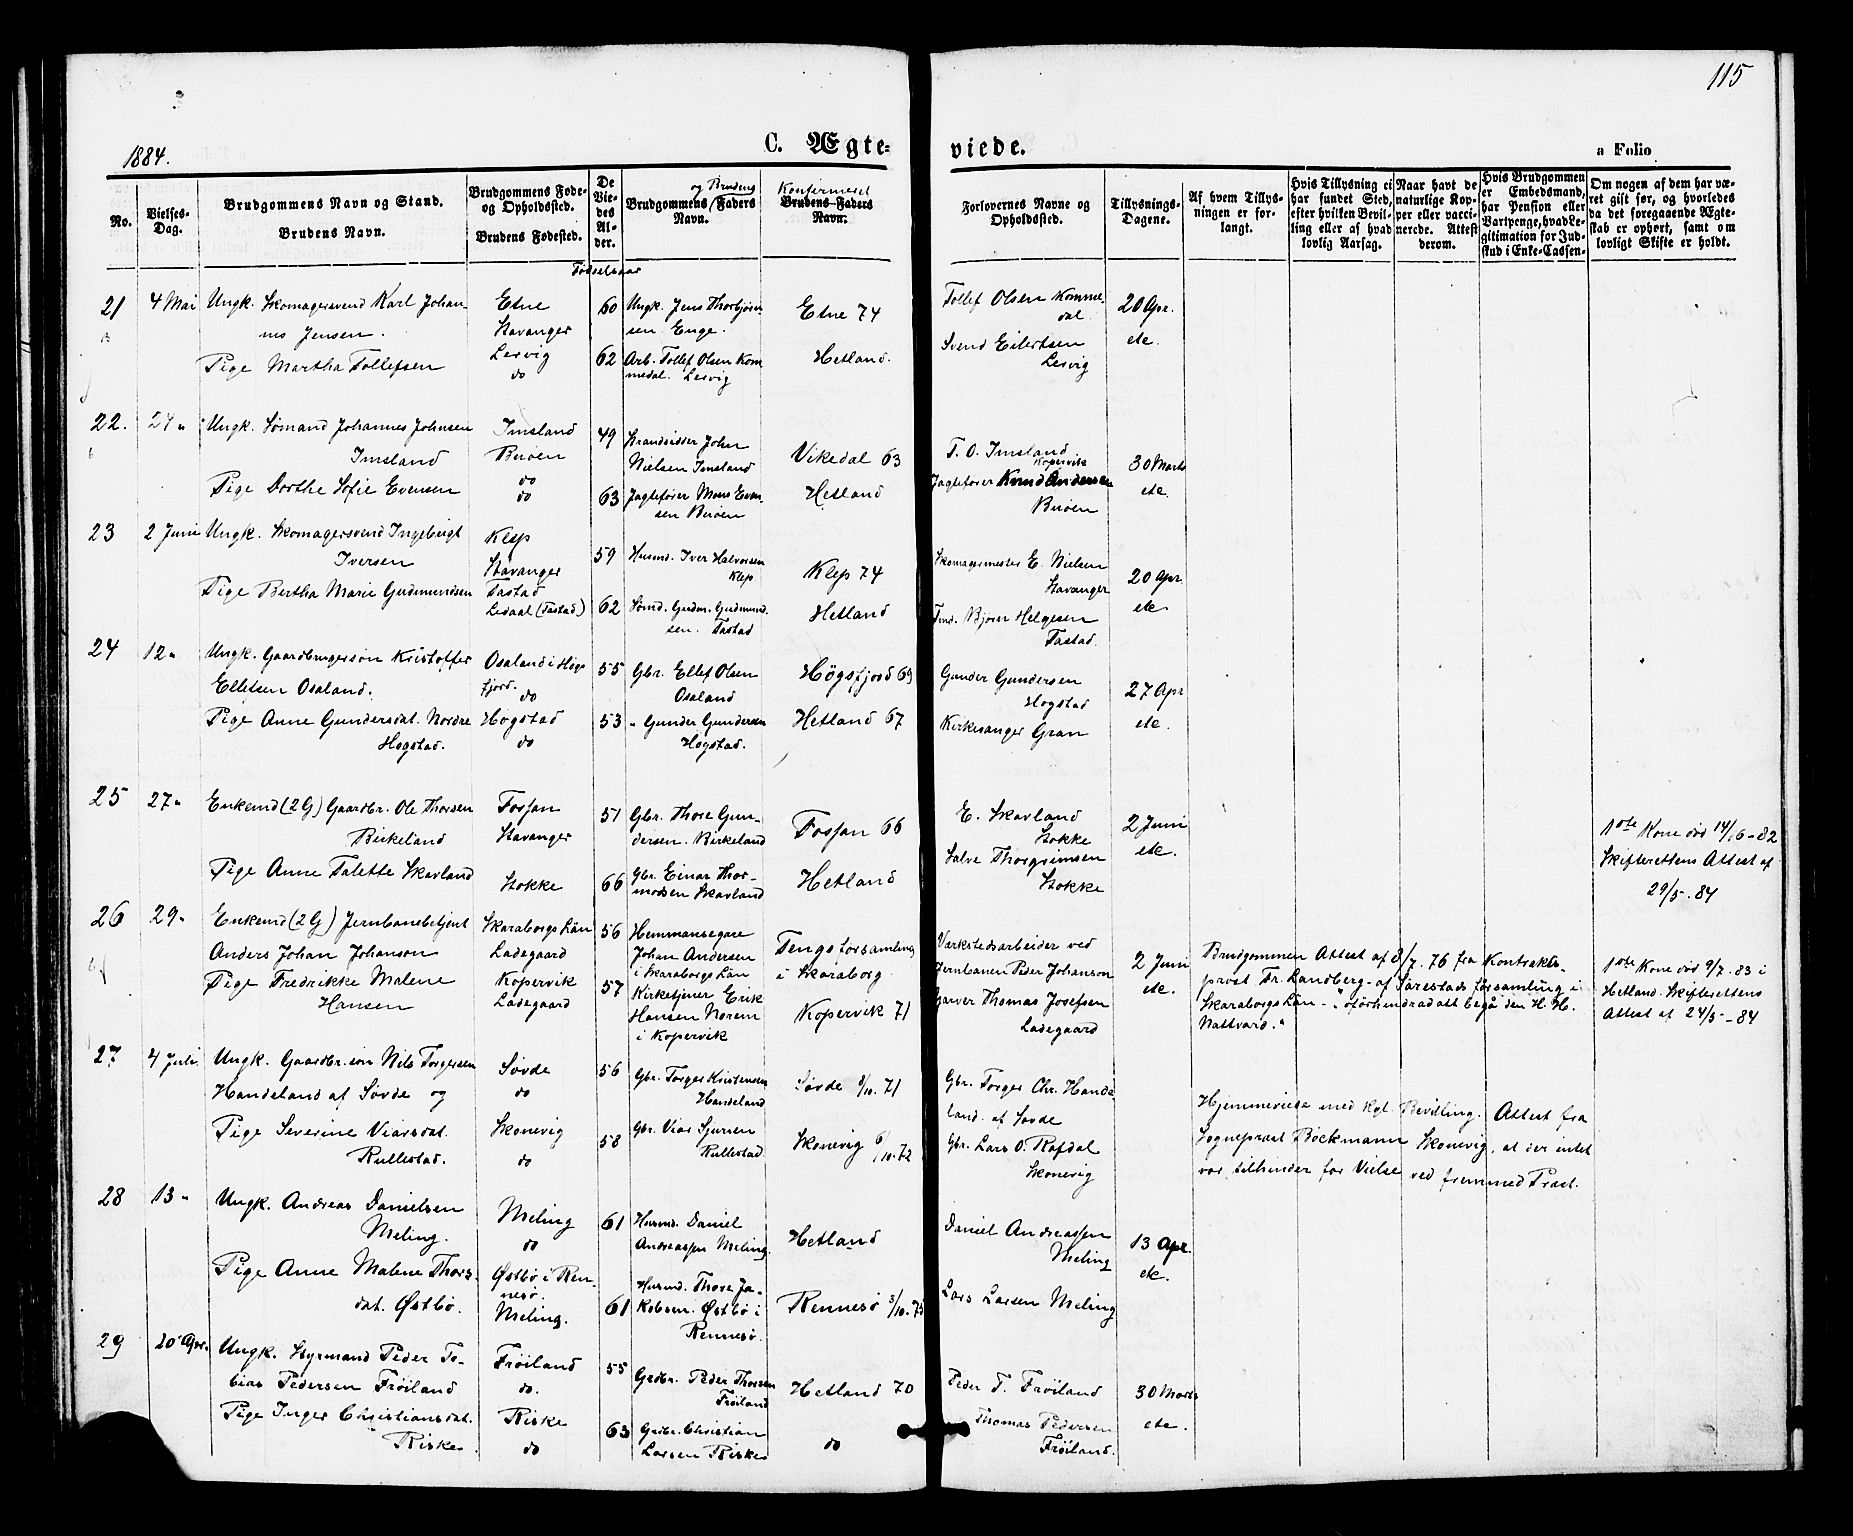 115
1884.
C. Ægte-
viede.
a Folio
No.
Vielses-
Dag.
Brudgommens Navn og Stand.
Brudens Navn.
Brudgommens Føde-
og Opholdssted.
Brudens Fødested.
De
Vie-
des
Al-
der.
Fødselsaar
og Brudens
Brudgommens Faders
Navn.
Konfirmeret
Brudens Faders
Navn.
Forlovernes Navne og
Opholdssted.
Tillysnings-
Dagene.
Af hvem Tillys-
ningen er for-
langt.
Hvis Tillysning ei
har fundet Sted,
efter hvilken Bevil-
ling eller af hvad
lovlig Aarsag.
Naar havt de
naturlige Kop-
per eller vacci-
nerede. Attest
derom.
Hvis Brudgommen
er Embedsmand,
har Pension eller
Vartpenge, hvad Le-
gitimation for Ind-
skud i Enke-Cassen.
Om nogen af dem har væ-
ret gift før, og hvorledes
da det foregaaende Ægte-
skab er ophørt, samt om
lovligt Skifte er holdt.
21
4 Mai
Ungk. Skomagersvend Karl Johan-
nes Jensen.
Pige Martha Tollefsen
Etne
Stavanger
Lervig
do
60
62
Ungk. Jens Thorbjørn-
sen Enge.
Arb. Tollef Olsen Kom
medal. Lervig
Etne 74
Hetland.
Tollef Olsen Komme-
dal.
Svend Eilertsen
Lervig
20 Apr.
etc.
22.
24 "
Ungk. Sømand Johannes Johnsen
Imsland
Pige Dorthe Sofie Evensen
Imsland
Buøen
do
do
49
63
Strandsidder John
Nielsen Imsland
Jagtefører Mons Even-
sen Buøen
Vikedal 63
Hetland
T. O. Imsland
Kopervik
Jagtefører Knud Andersen
Buøen
30 Marts
etc.
23
2 Juni
Ungk. Skomagersvend Ingebrigt
Iversen
Pige Bertha Marie Gudmundsen
Klep
Stavanger
Tastad
Ledaal (Tastad)
59
62
Husmd. Iver Halvorsen
Klep
Sømd. Gudm. Gudmund-
sen. Tastad
Klep 74
Hetland
Skomagermester E. Nielsen
Stavanger
Tmd. Bjørn Helgesen
Tastad.
20 Apr
etc
24
12 "
Ungk. Gaardbrugersøn Kristoffer
Ellefsen Osaland.
Pige Anne Gundersdat. Nordre
Hogstad.
Osaland i Høgs
fjord.
do
Høgstad
do
55
53
Gbr. Ellef Olsen
Osaland
" Gunder Gundersen
Hogstad.
Høgsfjord 69
Hetland 67
Gunder Gundersen
Hogstad
Kirkesanger Gran
27 Apr
etc.
25
27 "
Enkemd (2G) Gaardbr. Ole Thorsen
Birkeland
Pige Anne Talette Skavland
Fossan
Stavanger
Stokke
51
66
Gbr. Thore Gun-
dersen. Birkeland
Gbr. Einar Thor-
modsen Skavland
Fossan 66
Hetland
E. Skavland
Stokke
Salve Thorgrimsen
Stokke
2 Juni
etc.
1ste Kone død 14/6-82
Skifterettens Attest af
29/5.84
26
29 "
Enkemd (2G) Jernbanebetjent
Anders Johan Johanson
Pige Fredrikke Malene
Hansen
Skaraborgs Län
Ladegaard
Kopervik
Ladegaard
56
57
Hemmansegare
Johan Andersen
i Skaraborgs Län
Kirketjener Erik
Hansen Norem
i Kopervik
Tengs forsamling
i Skaraborg
Kopervik 71
Værkstedsarbeider ved
Jernbanen Peder Johanson
Garver Thomas Josefsen
Ladegaard
2 Juni
etc.
Brudgommen Attest af 3/7.76 fra Kontrakts-
prost Fr. Landberg - af Särestads församling i
Skaraborgs Län - "oförhindrad att begå den H. H.
Nattvard."
1ste Kone død 9/7.83 i
Hetland. Skifterettens
Attest af 24/5-84
27
4 Juli
Ungk. Gaardbr.søn Nils Torgersen
Handeland af Søvde og
Pige Severine Viarsdat.
Rullestad.
Søvde
do
Skonevig
do
56
58
Gbr. Torger Kristensen
Handeland
Gbr. Viar Sjursen
Rullestad
Søvde 1/10.71
Skonevig 6/10.72
Gbr. Torger Chr. Hande-
land. af Søvde
Gbr. Lars O. Rafdal
Skonevig
Hjemmeviede med Kgl. Bevilling. Attest fra
Sogneprest Bøckmann Skonevig, at der intet
var tilhinder for Vielse ved fremmed Præst.
28
13 "
Ungk. Andreas Danielsen
Meling.
Pige Anne Malene Thors-
dat. Østbø.
Meling
do
Østbø i Ren-
nesø.
Meling.
61
61
Husmd. Daniel
Andreassen Meling.
Husmd. Thore Ja-
kobsen. Østbø i
Rennesø.
Hetland
Rennesø 3/10.75
Daniel Andreassen
Meling
Lars Larsen Meling
13 Apr.
etc.
29
20 Apr.
Ungk. Styrmand Peder To-
bias Pedersen Frøiland
Pige Inger Christiansdat.
Riske.
Frøiland
do.
Riske
do
55
63
Grdbr. Peder Thorsen
Frøiland
Grdbr. Christian
Larsen Riske
Hetland 70
do
Peder T. Frøiland
Thomas Pedersen
Frøiland.
30 Marts
etc.